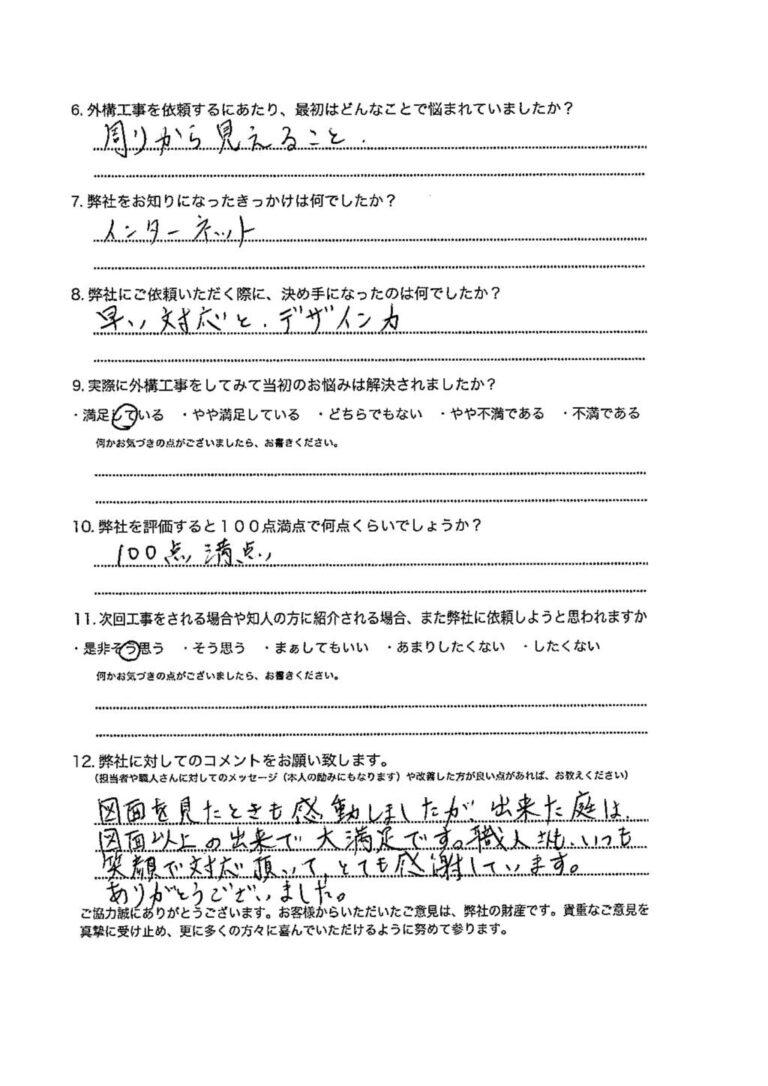 6. 外構工事を依頼するにあたり、最初はどんなことで悩まれていましたか？
周りから見えること.
7. 弊社をお知りになったきっかけは何でしたか？
インターネット
8. 弊社にご依頼いただく際に、決め手になったのは何でしたか？
早い対応と.デザイン力
9. 実際に外構工事をしてみて当初のお悩みは解決されましたか？
・満足している　・やや満足している　・どちらでもない　・やや不満である　・不満である
何かお気づきの点がございましたら、お書きください。
10. 弊社を評価すると１００点満点で何点くらいでしょうか？
100点満点
11. 次回工事をされる場合や知人の方に紹介される場合、また弊社に依頼しようと思われますか
・是非そう思う　・そう思う　・まぁしてもいい　・あまりしたくない　・したくない
何かお気づきの点がございましたら、お書きください。
12. 弊社に対してのコメントをお願い致します。
（担当者や職人さんに対してのメッセージ（本人の励みにもなります）や改善した方が良い点があれば、お教えください）
図面を見たときも感動しましたが、出来た庭は、
図面以上の出来で大満足です。職人さんも、いつも
笑顔で対応頂いて、とても感謝しています。
ありがとうございました。
ご協力誠にありがとうございます。お客様からいただいたご意見は、弊社の財産です。貴重なご意見を
真摯に受け止め、更に多くの方々に喜んでいただけるように努めて参ります。